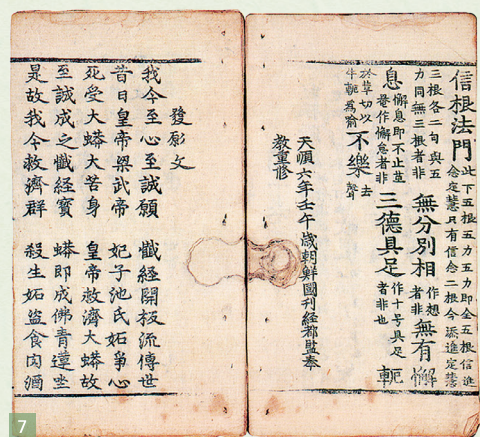 信根法門 此下五根五力五力即金五根信進念定慧只有信念二根今添進定慧
三根各二句與五力同無三根者非 無分別相 作想者非 無有懈
息 懈息即不止並卷作懈怠者非 三德具足 作十号具足者非也 軛
於草切以牛軛爲喻 不樂 去聲
天順六年壬午歲朝鮮國刊經都監奉
教重修
發願文
我今至心至誠願 懺經開板流傳世
昔日皇帝梁武帝 妃子池氏妬爭心
死受大蟒大苦身 皇帝救濟大蟒故
至誠成之懺經寶 蟒即成佛青蓮坐
是故我今救濟群 殺生妬盜食肉酒
7